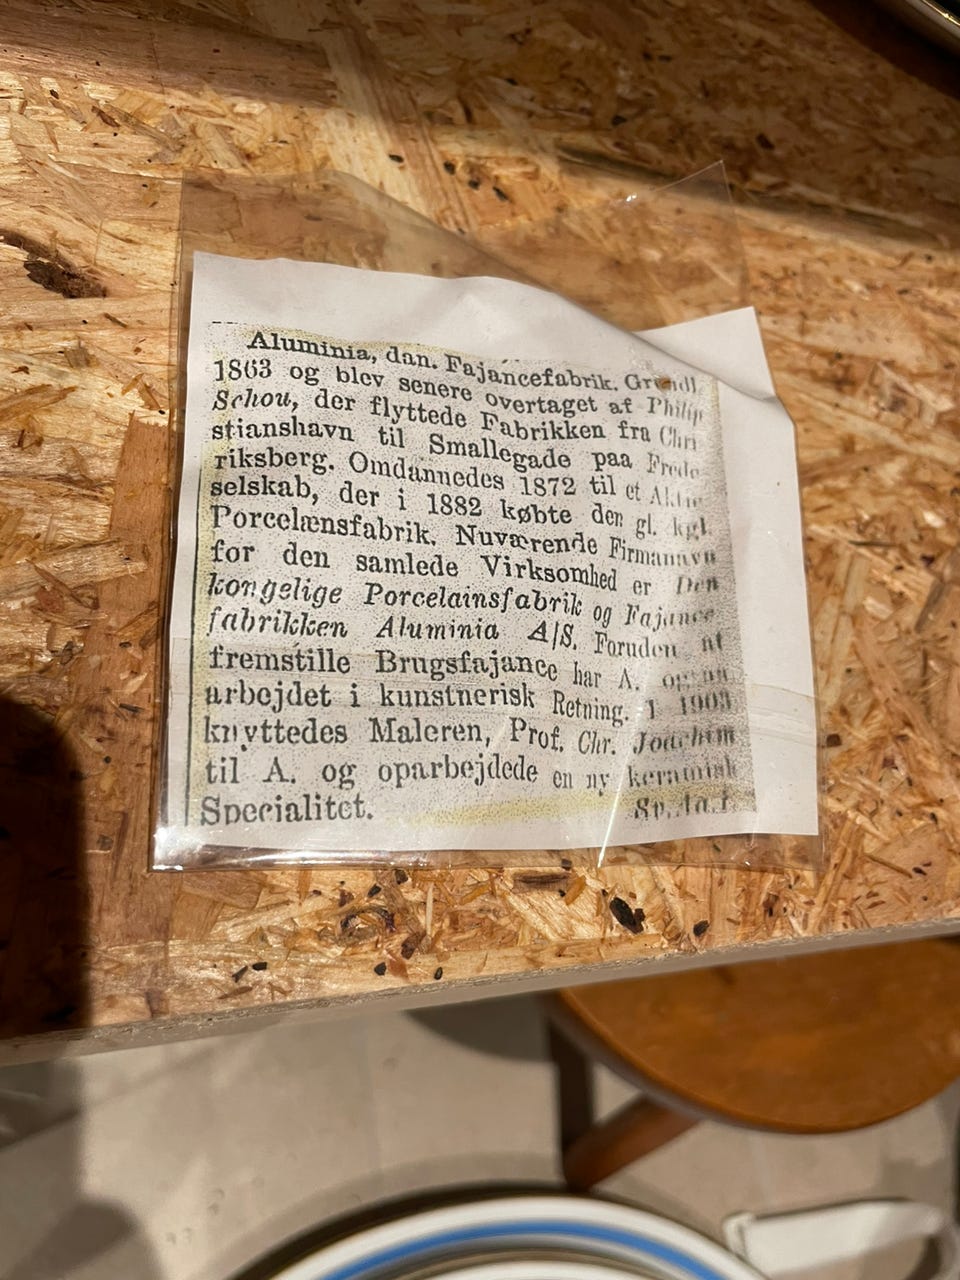 Aluminia, dan. Fajancefabrik. Grundl.
1863 og blev senere overtaget af Philip
Schou, der flyttede Fabrikken fra Chri
stianshavn til Smallegade paa Frede-
riksberg. Omdannedes 1872 til et Aktie
selskab, der i 1882 købte den gl. kgl.
Porcelænsfabrik. Nuværende Firmanavn
for den samlede Virksomhed er Den
kongelige Porcelainsfabrik og Fajance
fabrikken Aluminia A/S. Foruden at
fremstille Brugsfajance har A. ogsaa
arbejdet i kunstnerisk Retning. I 1903
knyttedes Maleren, Prof. Chr. Joachim
til A. og oparbejdede en ny keramisk
Specialitet.